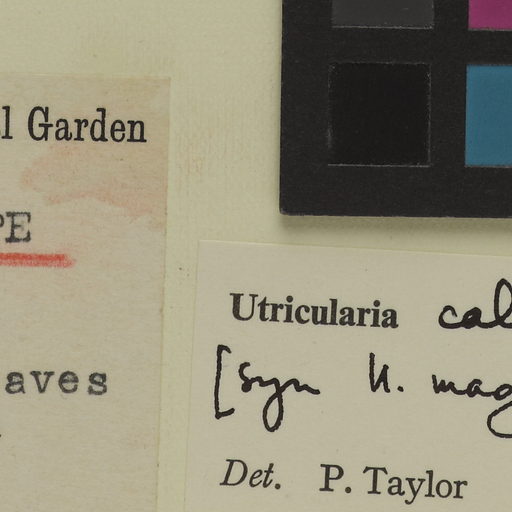 l Garden
PE
aves
Utricularia cal
[syn U. mag
Det. P. Taylor